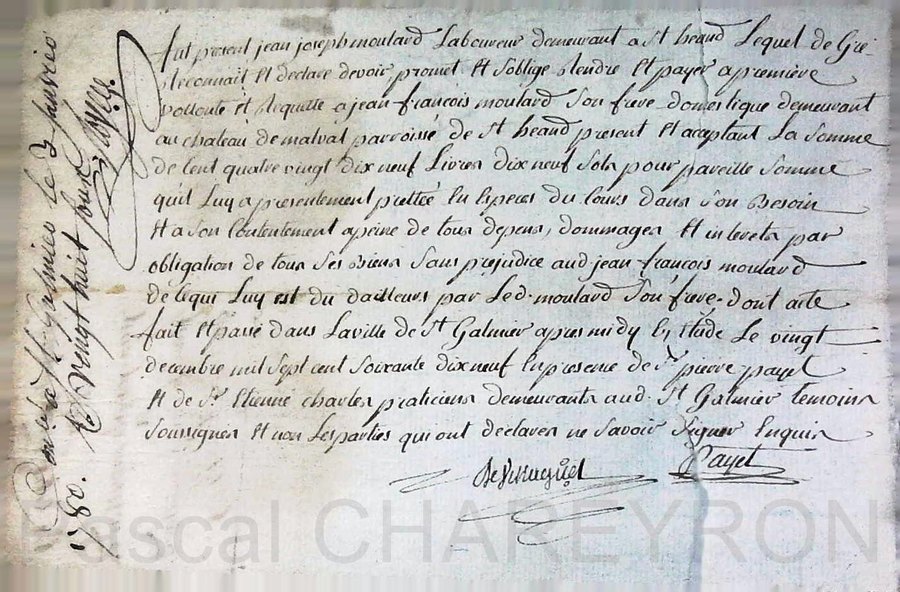 fut present jean joseph moulard Laboureur demeurant a St heand Lequel de Gré
Reconnait et declare devoir promet et soblige Rendre et payer a premiere
vollonte et Requitte a jean françois moulard Son frere domestique demeurant
au chateau de malval parroisse de St heand present et aceptant La Somme
de Cent quatre vingt dix neuf Livres dix neuf Sols pour pareille Somme
quil Luy a presentement prettée En Especes du Cours dans Son Besoin
et a Son Contentement a peine de tous depens, dommages et interets par
obligation de tous Ses Biens Sans prejudice aud jean françois moulard
de Ce qui Luy est du dailleurs par Led. moulard Son frere. dont acte
fait et passé dans La ville de St Galmier apres midy En Etude Le vingt
decembre mil Sept cent Soixante dix neuf En presence de Sr. pierre payet
et de Sr. Etienne charles praticiens demeurants aud. St Galmier temoins
Soussignes et non Les parties qui ont declarer ne Savoir Signer Enquis
Payet
Controlé St Galmier Le 3 janvier
1780. Rd vingt huit sous
Pascal CHAREYRON